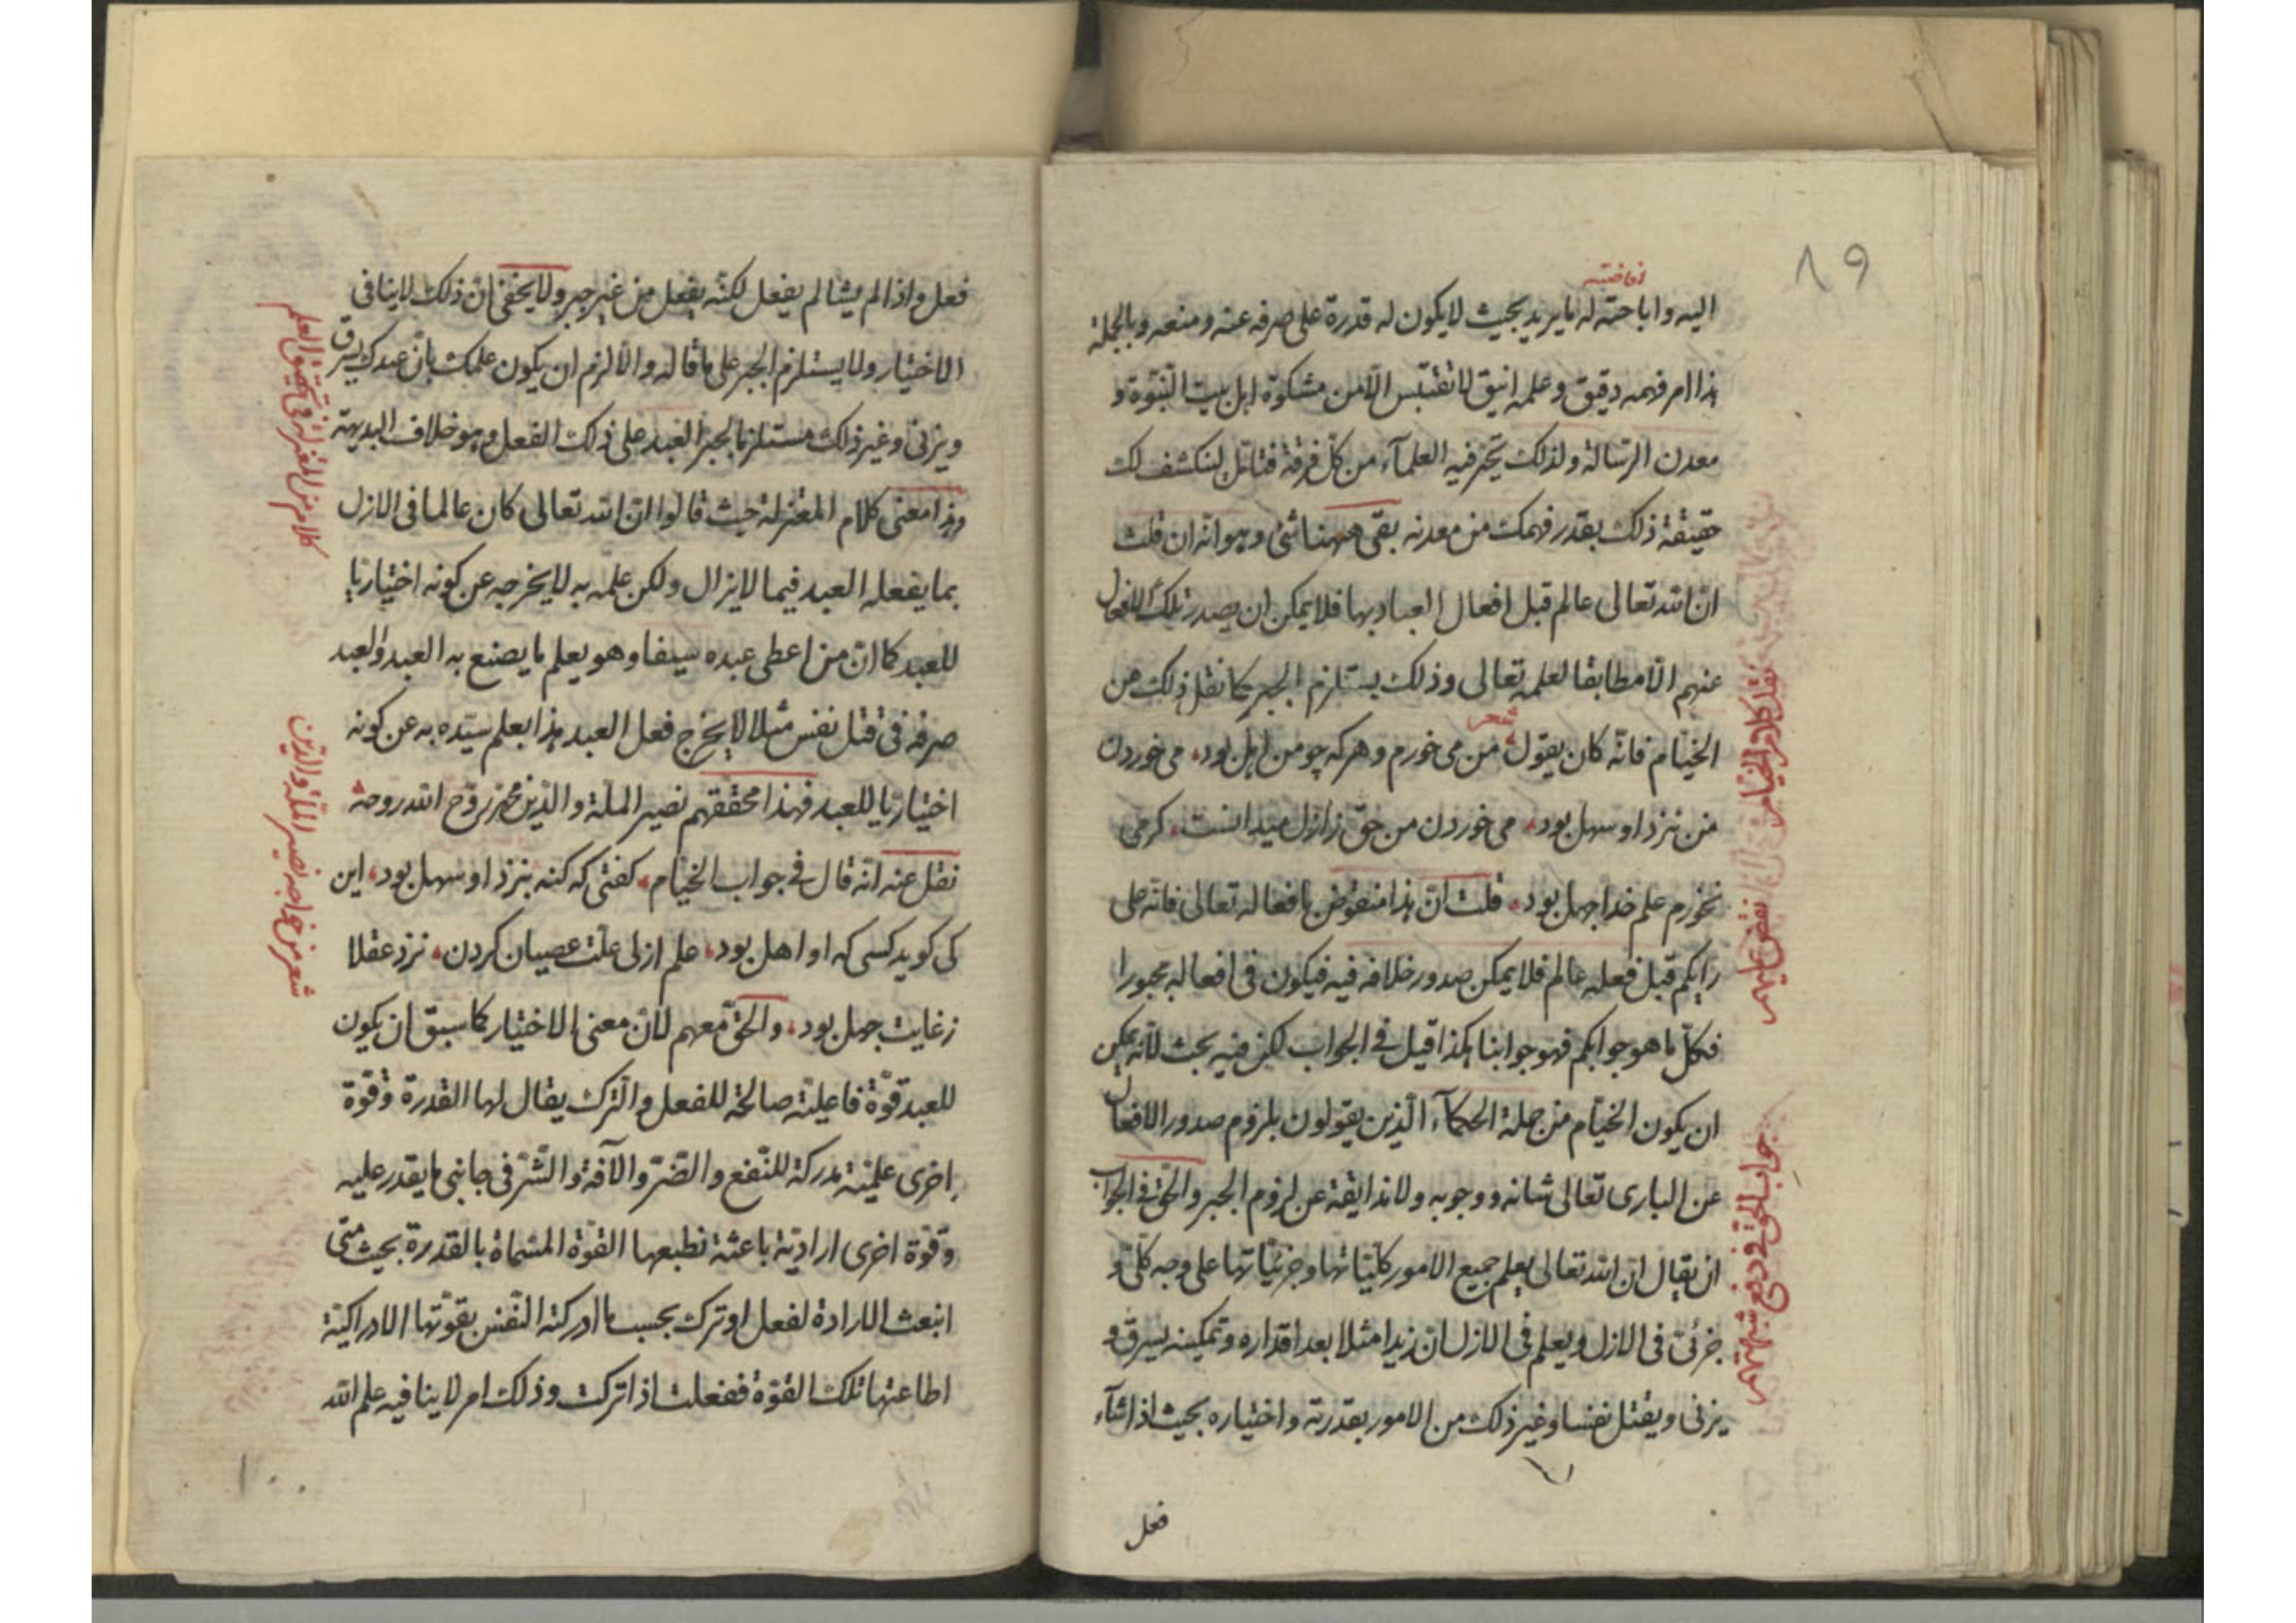 ٨٩
افاضته
اليه واباحته له ما يريد بحيث لا يكون له قدرة على صرفه عنه ومنعه وبالجملة
هذا امر فهمه دقيق وعلمه انيق لا تقتبس الّا من مشكوة اهل بيت النّبوّة و
معدن الرّسالة ولذلك تحيّر فيه العلمآء من كلّ فرقة فتامّل لينكشف لك
حقيقة ذلك بقدر فهمك من معدنه بقى ههنا شئ وهو انّه ان قلت
انّ الله تعالى عالم قبل افعال العباد بها فلا يمكن ان يصدر تلك الافعال
عنهم الّا مطابقا لعلمه تعالى وذلك يستلزم الجبر كما نقل ذلك من
الخيّام فانّه كان يقول شعر من مى خورم وهركه چو من اهل بود، مى خوردن
من نزد او سهل بود، مى خوردن من حق ز ازل ميدانست، كر مى
نخورم علم خدا جهل بود، قلت انّ هذا منقوض بافعاله تعالى فانّه على
رايكم قبل فعله عالم فلا يمكن صدور خلافه فيه فيكون فى افعاله مجبورا
فكلّ ما هو جوابكم فهو جوابنا هكذا قيل فى الجواب لكن فيه بحث لانّه يمكن
ان يكون الخيّام من جملة الحكمآء الّذين يقولون بلزوم صدور الافعال
عن البارى تعالى شانه ووجوبه ولا مضايقة عن لزوم الجبر والحقّ فى الجواب
ان يقال انّ الله تعالى يعلم جميع الامور كلّيّاتها وجزئيّاتها على وجه كلّى و
جزئى فى الازل ويعلم فى الازل ان زيدا مثلا بعد اقداره وتمكينه يسرق و
يزنى ويقتل نفسا وغير ذلك من الامور بقدرته واختياره بحيث اذا شآء
فعل
نقل كلام الخيام
نقض عليهم
جواب الحق فى دفع شبهتهم
فعل واذا لم يشا لم يفعل لكنّه يفعل من غير جبر ولا يخفى انّ ذلك لا ينافى
الاختيار ولا يستلزم الجبر على ما قاله والّا لزم ان يكون علمك بانّ عبدك يسرق
ويزنى وغير ذلك مستلزما لجبر العبد على ذلك الفعل وهو خلاف البديهة
وهذا معنى كلام المعتزلة حيث قالوا انّ الله تعالى كان عالما فى الازل
بما يفعله العبد فيما لا يزال ولكن علمه به لا يخرجه عن كونه اختياريّا
للعبد كما انّ من اعطى عبده سيفا وهو يعلم ما يصنع به العبد والعبد
صرفه فى قتل نفس مثلا لا يخرج فعل العبد هذا بعلم سيّده به عن كونه
اختياريّا للعبد فهذا محقّقهم نصير الملّة والدّين محمّد روّح الله روحه
نقل عنه انّه قال فى جواب الخيّام، كفتى كه كنه بنزد او سهل بود، اين
كى كويد كسى كه او اهل بود، علم ازلى علّت عصيان كردن، نزد عقلا
زغايت جهل بود، والحقّ معهم لانّ معنى الاختيار كما سبق ان يكون
للعبد قوّة فاعليّة صالحة للفعل والترك يقال لها القدرة وقوّة
اخرى علميّة مدركة للنّفع والضّرّ والآفة والشّرّ فى جانبى ما يقدر عليه
وقوّة اخرى اراديّة باعثة تطيعها القوّة المسمّاة بالقدرة بحيث متى
انبعث الارادة لفعل او ترك بحسب ما ادركته النّفس بقوّتها الادراكيّة
اطاعتها تلك القوّة ففعلت اذا تركت وذلك امر لا ينافيه علم الله
كلام من المعتزلة فى تحقيق العلم
شعر من خواجه نصير الملّة والدّين
١٠٠